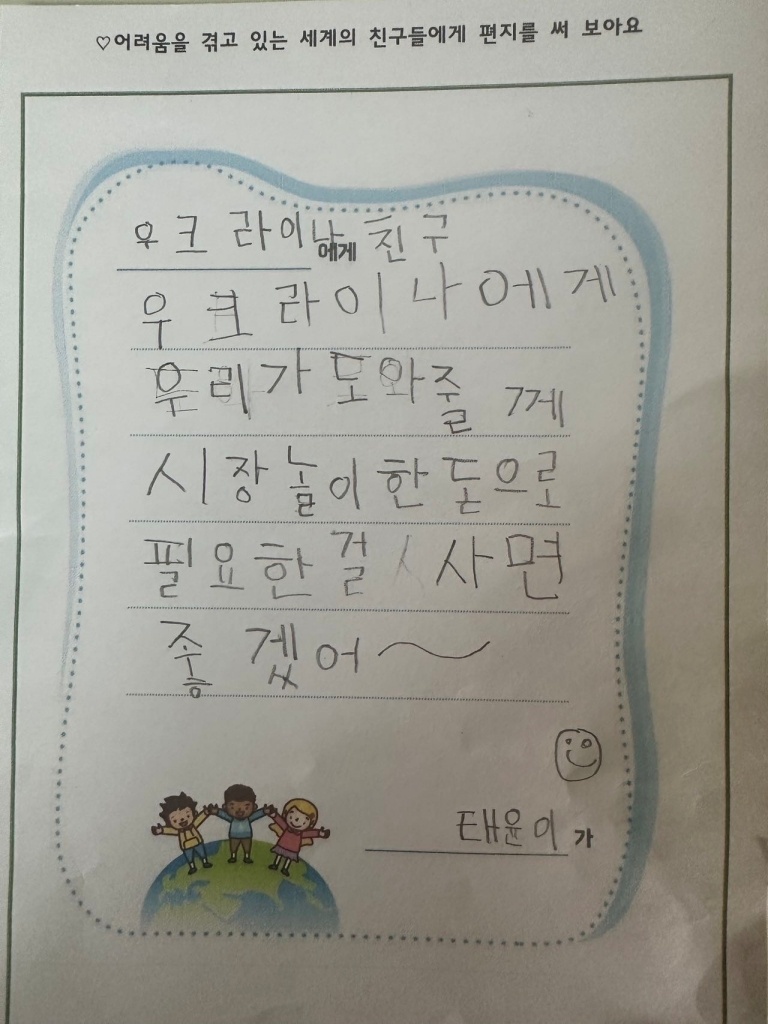 ♡어려움을 겪고 있는 세계의 친구들에게 편지를 써 보아요
우크라이나에게 친구
우크라이나에게
우리가 도와줄게
시장놀이한돈으로
필요한걸 사면
좋겠어~
태윤이가